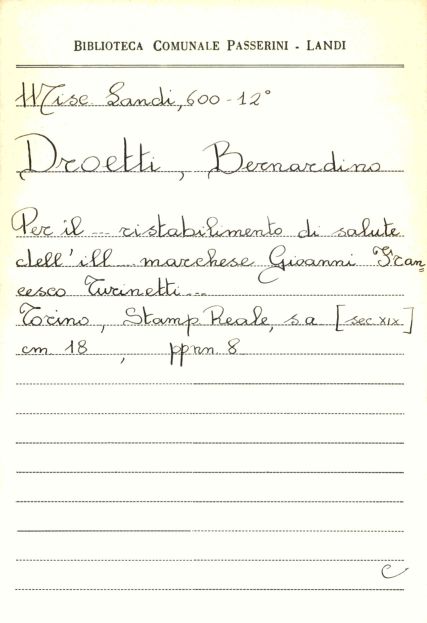 BIBLIOTECA COMUNALE PASSERINI - LANDI
Misc. Landi, 600 - 12°
Droetti, Bernardino
Per il ... ristabilimento di salute
dell'ill... marchese Gioanni Fran=
cesco Turinetti...
Torino, Stamp. Reale, s.a. [sec. XIX]
cm. 18, pp.nn. 8
C